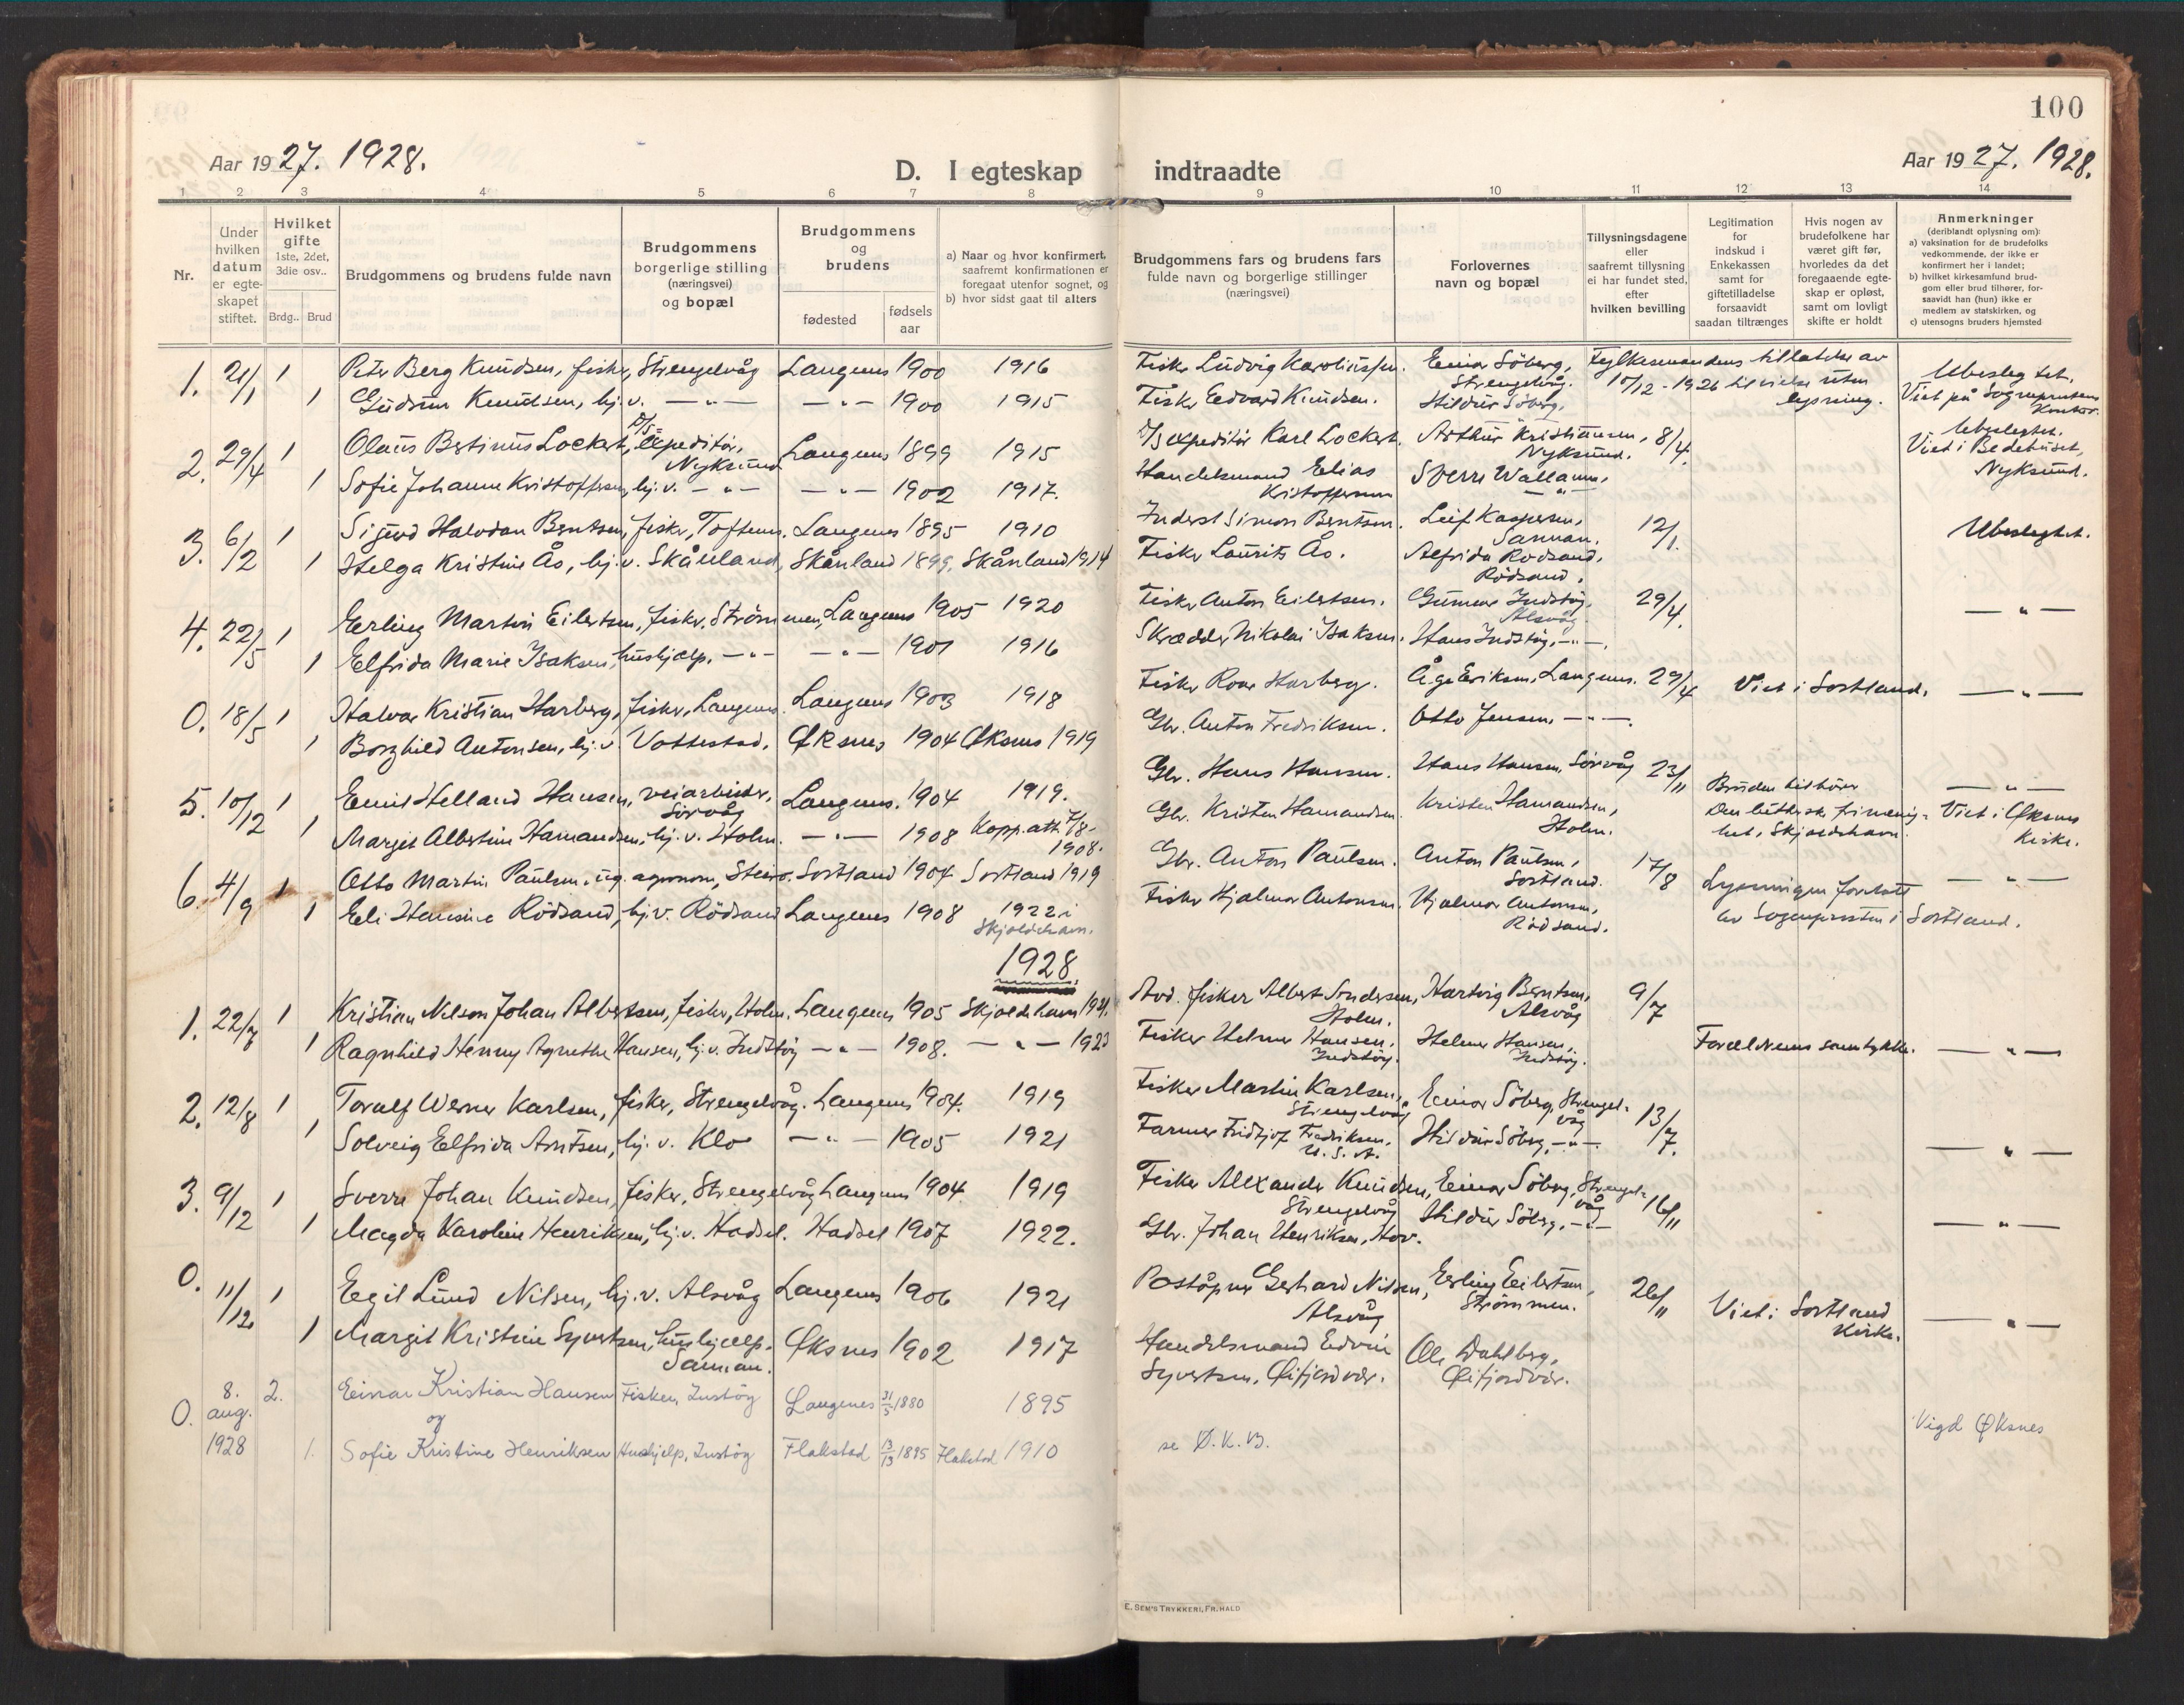 100
Aar 1927. 1928.
D. I egteskap indtraadte
Aar 1927. 1928.
1 2 3 4 5 6 7 8 9 10 11 12 13 14
Nr.
Under hvilken datum er egteskapet stiftet.
Hvilket gifte 1ste, 2det, 3die osv..
Brdg.. Brud
Brudgommens og brudens fulde navn
Brudgommens borgerlige stilling (næringsvei) og bopæl
Brudgommens og brudens
fødested
fødsels aar
a) Naar og hvor konfirmert, saafremt konfirmationen er foregaat utenfor sognet, og
b) hvor sidst gaat til alters
Brudgommens fars og brudens fars fulde navn og borgerlige stillinger (næringsvei)
Forlovernes navn og bopæl
Tillysningsdagene eller saafremt tillysning ei har fundet sted, efter hvilken bevilling
Legitimation for indskud i Enkekassen samt for giftetilladelse forsaavidt saadan tiltrænges
Hvis nogen av brudefolkene har været gift før, hvorledes da det foregaaende egteskap er opløst, samt om lovligt skifte er holdt
Anmerkninger (deriblandt oplysning om):
a) vaksination for de brudefolks vedkommende, der ikke er konfirmert her i landet;
b) hvilket kirkesamfund brudgom eller brud tilhører, forsaavidt han (hun) ikke er medlem av statskirken, og
c) utensogns bruders hjemsted
1. 21/1 1 Peter Berg Knudsen, fisker, Strengelvåg Langenes 1900 1916 Fisker Ludvig Karoliussen. Einar Söberg, Strengelvåg. Fylkesmandens tillatelse av 10/12-1926 til vielse uten lysning. Ubeslegtet. Viet på Sogneprestens Kontor.
1 Gudrun Knudsen, hj.v. —„— —„— 1900 1915 Fisker Edvard Knudsen. Hildur Söberg.
2. 29/4 1 Olaus Bertinus Lockert, D/S= expeditör, Nyksund Langenes 1899 1915 D/S expeditör Karl Lockert. Arthur Kristiansen, Nyksund. 8/4. Ubeslegtet. Viet i Bedehuset, Nyksund.
1 Sofie Johanne Kristoffersen, hj.v. —„— —„— 1902 1917. Handelsmand Elias Kristoffersen Sverre Wallann, —„—
3. 6/2 1 Sigurd Halvdan Bentsen, fisker, Toftenes. Langenes 1895 1910 Inderst Simon Bentsen. Leif Kaspersen, Sannan. 12/1. Ubeslegtet.
1 Helga Kristine Ås, hj.v. Skånland, Skånland 1899. Skånland 1914 Fisker Laurits Ås. Alfrida Rödsand, Rödsand.
4. 22/5 1 Erling Martin Eilertsen, fisker, Strömmen, Langenes 1905 1920 Fisker Anton Eilertsen. Gunnar Indstöy, Alsvåg. 29/4. —„—
1 Elfrida Marie Isaksen, hushjelp. —„— —„— 1901 1916 Skrædder Nikolai Isaksen. Hans Indstöy, —„—.
0. 18/5 1 Halvar Kristian Harberg, fisker, Langenes. Langenes 1903 1918 Fisker Roar Harberg. Åge Eriksen, Langenes. 29/4 Viet i Sortland. —„—
1 Borghild Antonsen, hj.v. Vottestad. Øksnes 1904 Øksnes 1919 Gbr. Anton Fredriksen. Otto Jensen, —„—.
5. 10/12 1 Emil Helland Hansen, veiarbeider, Sörvåg Langenes. 1904 1919. Gbr. Hans Hansen. Hans Hansen, Sörvåg 23/11 Bruden tilhörer Den lutherske frimenighet, Skjoldehavn. —„— Viet i Øksnes Kirke.
1 Margit Albertine Hamandsen, hj.v. Holm. —„— 1908 Kopp.att. 7/8-1908. Gbr. Kristen Hamandsen. Kristen Hamandsen, Holm.
6. 4/9 1 Otto Martin Paulsen, ug. agronom, Steiro. Sortland 1904 Sortland 1919 Gbr. Anton Paulsen. Anton Paulsen, Sortland. 17/8 Lysningen foretatt av Sognepresten i Sortland. —„—
1 Eli Hansine Rödsand, hj.v. Rödsand Langenes 1908 1922 i Skjoldehavn. Fisker Hjalmar Antonsen. Hjalmar Antonsen, Rödsand.
1928
1. 22/7 1 Kristian Nelson Johan Albertsen, fisker, Holm. Langenes 1905 Skjoldehavn 1921. Avd. fisker Albert Andersen, Holm. Hartvig Bentsen, Alsvåg 9/7
1 Ragnhild Henny Agnethe Hansen, hj.v. Indstöy —„— 1908. —„— 1923 Fisker Helmer Hansen, Indstöy. Helmer Hansen, Indstöy. Forældrenes samtykke. —„—
2. 12/8 1 Toralf Werner Karlsen, fisker, Strengelvåg. Langenes 1904. 1919 Fisker Martin Karlsen, Strengelvåg Einar Söberg, Strengelvåg 13/7.
1 Solveig Elfrida Arntsen, hj.v. Klo —„— 1905 1921 Farmer Fridtjof Fredriksen, U.S.A. Hildur Söberg, —„—. —„—
3. 9/12 1 Sverre Johan Knudsen, fisker, Strengelvåg Langenes 1904. 1919 Fisker Alexander Knudsen, Strengelvåg Einar Söberg, Strengelvåg 16/11
1 Magda Karoline Henriksen, hj.v. Hadsel. Hadsel 1907 1922. Gbr. Johan Henriksen, Hov. Hildur Söberg, —„— —„—
0. 11/12. 1 Egil Lund Nilsen, hj.v. Alsvåg Langenes 1906 1921 Poståpner Gerhard Nilsen, Alsvåg Erling Eilertsen, Strömmen. 26/11 Viet i Sortland Kirke. —„—
1 Margit Kristine Syvertsen, hushjelp. Sannan. Øksnes 1902 1917 Handelsmand Edvin Syvertsen, Øifjordvær. Ole Dahlberg, Øifjordvær.
0. 8. aug. 1928 2. Einar Kristian Hansen Fisker, Instöy Langenes 31/5 1880 1895
og
1. Sofie Kristine Henriksen Hushjelp, Instöy Flakstad 13/13 1895 Flakstad 1910 se Ø.K.B. Vigd Øksnes
E. SEM'S TRYKKERI, FR. HALD